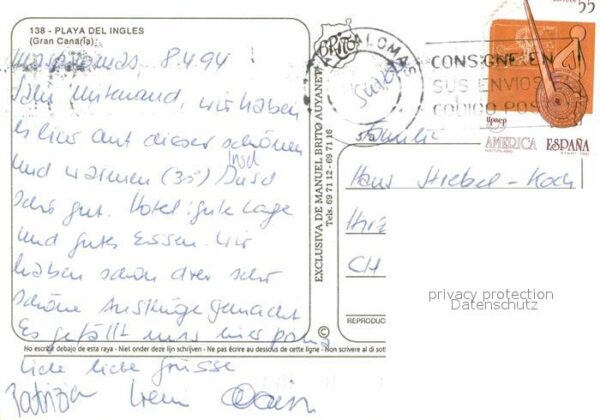 138 - PLAYA DEL INGLES
(Gran Canaria)
Maspalomas, 8.4.94
wir haben
es hier auf dieser schönen
Insel
und warmen (30°) Insel
sehr gut. Hotel: gute Lage
und gutes Essen. Wir
haben schon drei sehr
schöne Ausflüge gemacht
Es gefällt uns hier prima
Liebe liebe Grüsse
Patrizia Ireni
No escribir debajo de esta raya - Niet onder deze lijn schrijven - Ne pas écrire au dessous de cette ligne - Non scrivere al di sotto
BRITO
EXCLUSIVA DE MANUEL BRITO AUYANET
Tels. 69 71 12 - 69 71 16
©
REPRODUC
PALOMAS
CONSIGNE EN
SUS ENVIOS
CODIGO POS
55
upaep
AMERICA ESPAÑA
Familie
Hans Hiebel-Koch
CH
privacy protection
Datenschutz